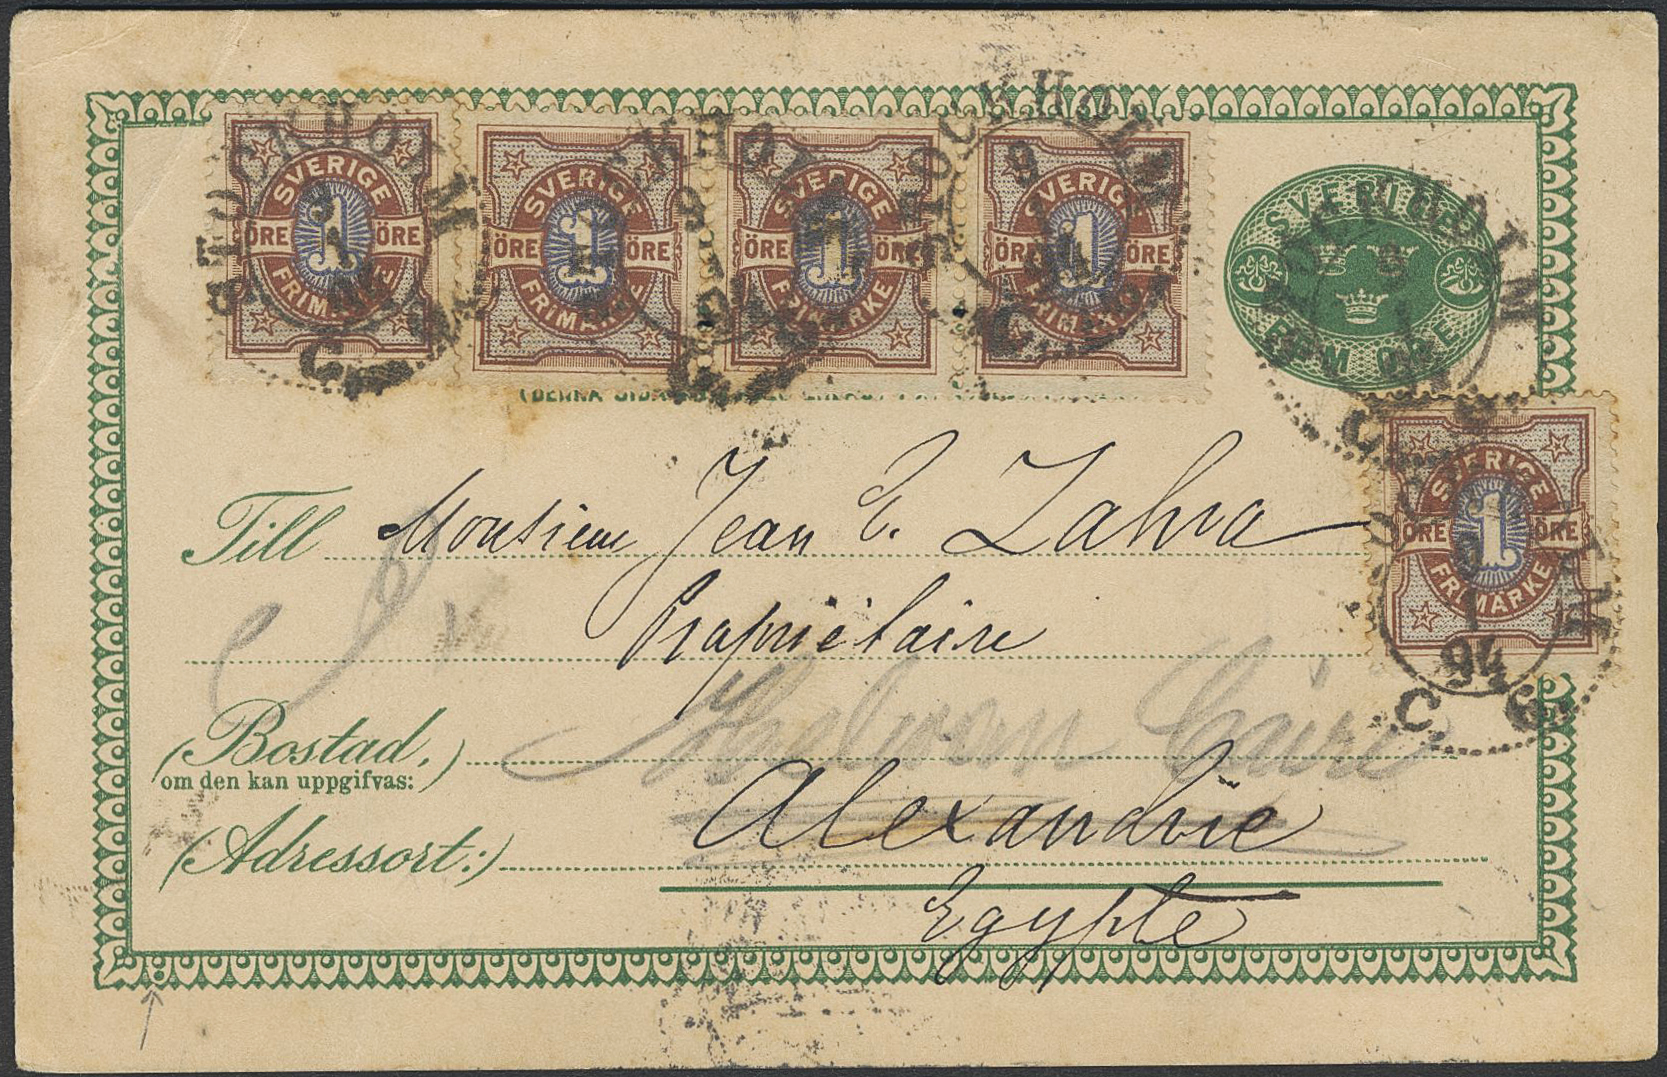 STOCKHOLM
SVERIGE
1
ÖRE ÖRE
FRIMÄRKE
C.
SVERIGE
1
ÖRE ÖRE
FRIMÄRKE
SVERIGE
1
ÖRE ÖRE
FRIMÄRKE
STOCKHOLM
9
1
94
C.
SVERIGE
1
ÖRE ÖRE
FRIMÄRKE
SVERIGE
FEM ÖRE
STOCKHOLM
SVERIGE
1
ÖRE ÖRE
FRIMÄRKE
94
C.
(DENNA SIDA
Till Monsieur Jean E. Zahra
Propriétaire
(Bostad,)
om den kan uppgifvas:
Helwan Caire
(Adressort:) Alexandrie
Egypte